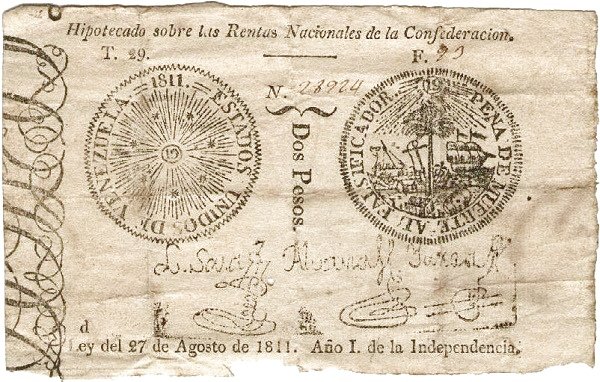 Hipotecado sobre las Rentas Nacionales de la Confederacion.
T. 29.
F.
N. 28924
ESTADOS UNIDOS DE VENEZUELA. 1811.
19
Dos Pesos.
PENA DE MUERTE AL FALSIFICADOR
19
d
Ley del 27 de Agosto de 1811. Año I. de la Independencia.